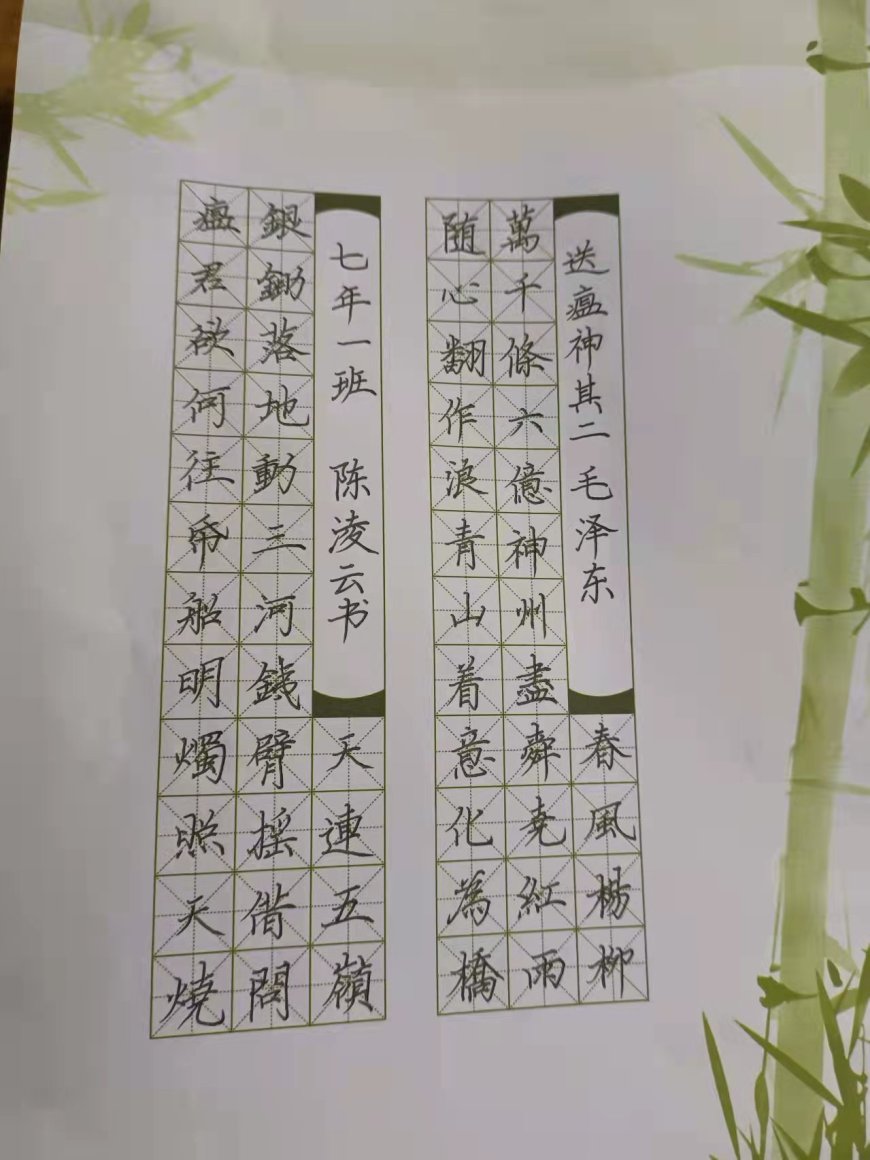 送瘟神其二 毛泽东
春風楊柳
萬千條六億神州盡舜堯紅雨
随心翻作浪青山着意化為橋
七年一班 陈凌云书
天連五嶺
銀鋤落地動三河銕臂摇借問
瘟君欲何往帋船明燭照天燒